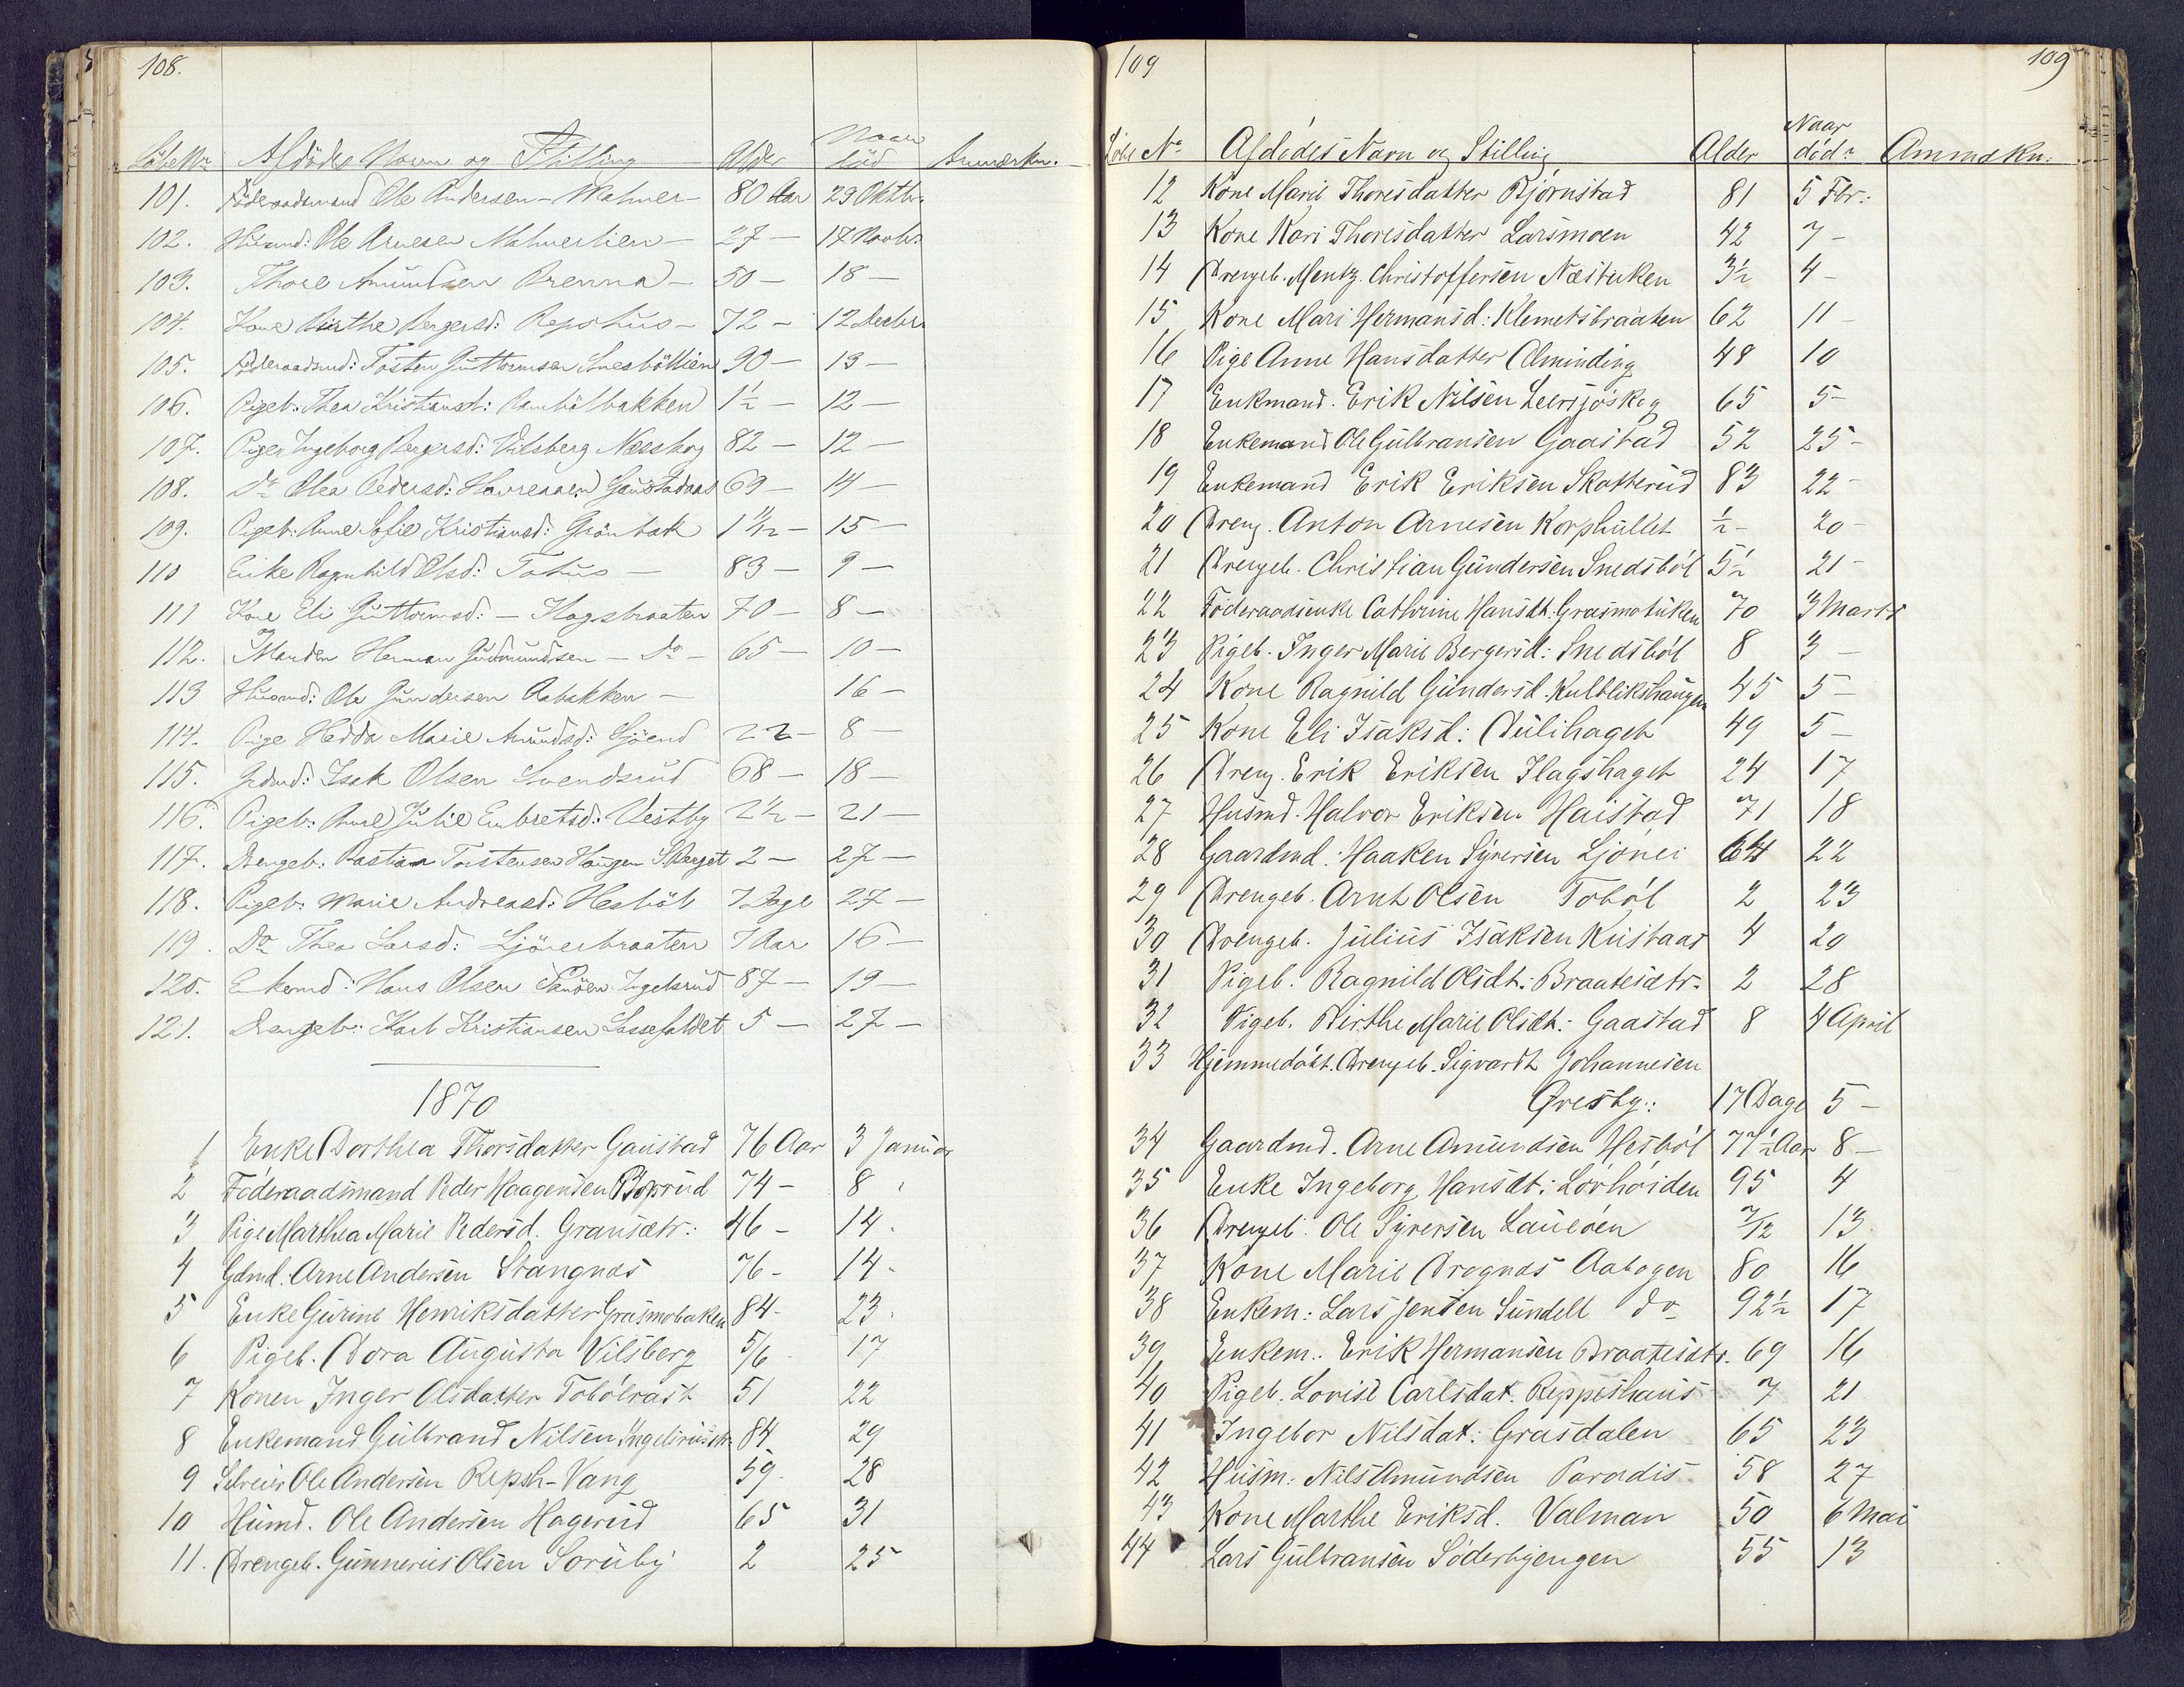 108.
LöbeNr Afdödes Navn og Stilling Alder Naar död Anmærkn.
101. Föderaadsmand Ole Andersen - Malmer - 80 Aar 29 Oktbr.
102. Husmd: Ole Arnesen Malmerlien - 27 - 17 Novbr.
103. Thore Amundsen Brenna - 50 - 18 -
104. Kone Birthe Bergersd: Repshus - 72 - 12 Decbr.
105. Föderaadsmd: Tosten Guttormsen Snesböllien 90 - 13 -
106. Pigeb: Thea Kristiansd: Ramhölbakken 1½ - 12 -
107. Pigen Ingeborg Bergersd: Vilsberg Næsskog 82 - 12 -
108. Do Olea Pedersd: Gaustadaas 69 - 14 -
109. Pigeb. Anne Sofie Kristiansd: Grönbak 1 11/12 - 15 -
110 Enke Ragnhild Olsd: Tohus - 83 - 9 -
111 Kone Eli Guttormsd: - Hagsbraaten 70 - 8 -
112. Manden Herman Gudmundsen - Do - 65 - 10 -
113 Husmd: Ole Gundersen Aabakken - 16 -
114. Pige Hedda Marie Amundsd: Sjöend 22 - 8 -
115. Grdmd: Isak Olsen Svendsrud 68 - 18 -
116. Pigeb: Anne Julie Embretsd: Vestby 2½ - 21 -
117. Drengeb: Bastian Torstensen Haugen Skberget 2 - 27 -
118. Pigeb: Marie Andreasd: Hesböl 7 Dage 27 -
119. Do Thea Larsd: Ljönerbraaten 7 Aar 16 -
120. Enkemd: Hans Olsen Ingelsrud 87 - 19 -
121. Drengeb: Karl Kristiansen Lassefaldet 5 - 27 -
1870
1 Enke Dorthea Thorsdatter Gaustad 76 Aar 3 Januar
2 Föderaadsmand Peder Haagensen Boprud 74 - 8
3 Pige Marthea Marie Pedersd. Gransætr: 46 - 14.
4 Gdmd. Arne Andersen Stangnæs 76 - 14 -
5 Enke Gurine Henriksdatter Græsmobaken 84 - 23.
6 Pigeb. Dora Augusta Vilsberg 5/6 - 17
7 Konen Inger Olsdatter Tobölrast 51 22
8 Enkemand Gulbrand Nilsen Ingelsrudstr. 84 29
9 Selveier Ole Andersen Repsh-Vang 59. 28
10 Husmd. Ole Andersen Hagerud 65 31
11. Drengeb. Gunnerius Olsen Soruby 2 25
109 109
Löbe No Afdødes Navn og Stilling Alder Naar død. Anmækn:
12 Kone Marie Thoresdatter Bjørnstad 81 5 Fbr.
13 Kone Kari Thoresdatter Larsmoen 42 7 -
14 Drengeb. Mentz Christoffersen Næstuken 3½ 4 -
15 Kone Mari Hermansd: Klemetsbraaten 62 11 -
16 Pige Anne Hansdatter Alminding 48 10
17 Enkmand. Erik Nilsen Leersjøskog 65 5 -
18 Enkemand Ole Gulbransen Gaastad 52 25 -
19 Enkemand Erik Eriksen Skotterud 83 22 -
20 Dreng. Anton Arnesen Korphullet ½ - 20 -
21 Drengeb. Christian Gundersen Snedsböl 5½ 21 -
22 Föderaadsenke Cathrine Hansdt. Græsmotuken 70 3 Marts
23 Pigeb. Inger Marie Bergersd: Snedsböl 8 3 -
24 Kone Ragnild Gundersd. Kulblikshaugen 45 5 -
25 Kone Eli Isaksd: Dulihaget 49 5 -
26 Dreng. Erik Eriksen Flagshaget 24 17
27 Husmd. Halvor Eriksen Haistad 71 18
28 Gaardmd: Haaken Syversen Ljönei 64 22
29 Drengeb. Arnt Olsen Toböl 2 23
30 Drengeb. Julius Isaksen Kustaas 4 20
31 Pigeb. Ragnild Olsdt: Braatesætr. 2 28
32 Pigeb. Birthe Marie Olsdt: Gaastad 8 4 April
33 Hjemmedöbt. Drengeb. Sigvardt Johannesen
Øresby.: 17 Dage 5 -
34 Gaardmd. Arne Amundsen Hesböl 77½ Aar 8 -
35 Enke Ingeborg Hansdt: Lövhöiden 95 4
36 Drengeb. Ole Syversen Lauröen 7/12 13.
37 Kone Marie Dragnæs Aabogen 80 16
38 Enkem: Lars Jensen Sundell do 92½ 17
39 Enkem: Erik Hermansen Braatesætr. 69 16
40 Pigeb. Lovise Carlsdat. Reppeshaus 7 21
41 Ingebor Nilsdat: Græsdalen 65 23
42 Husm: Nils Amundsen Paradis 58 27
43 Kone Marthe Eriksd. Valman 50 6 Mai
44 Lars Gulbransen Söderhjengen 55 13